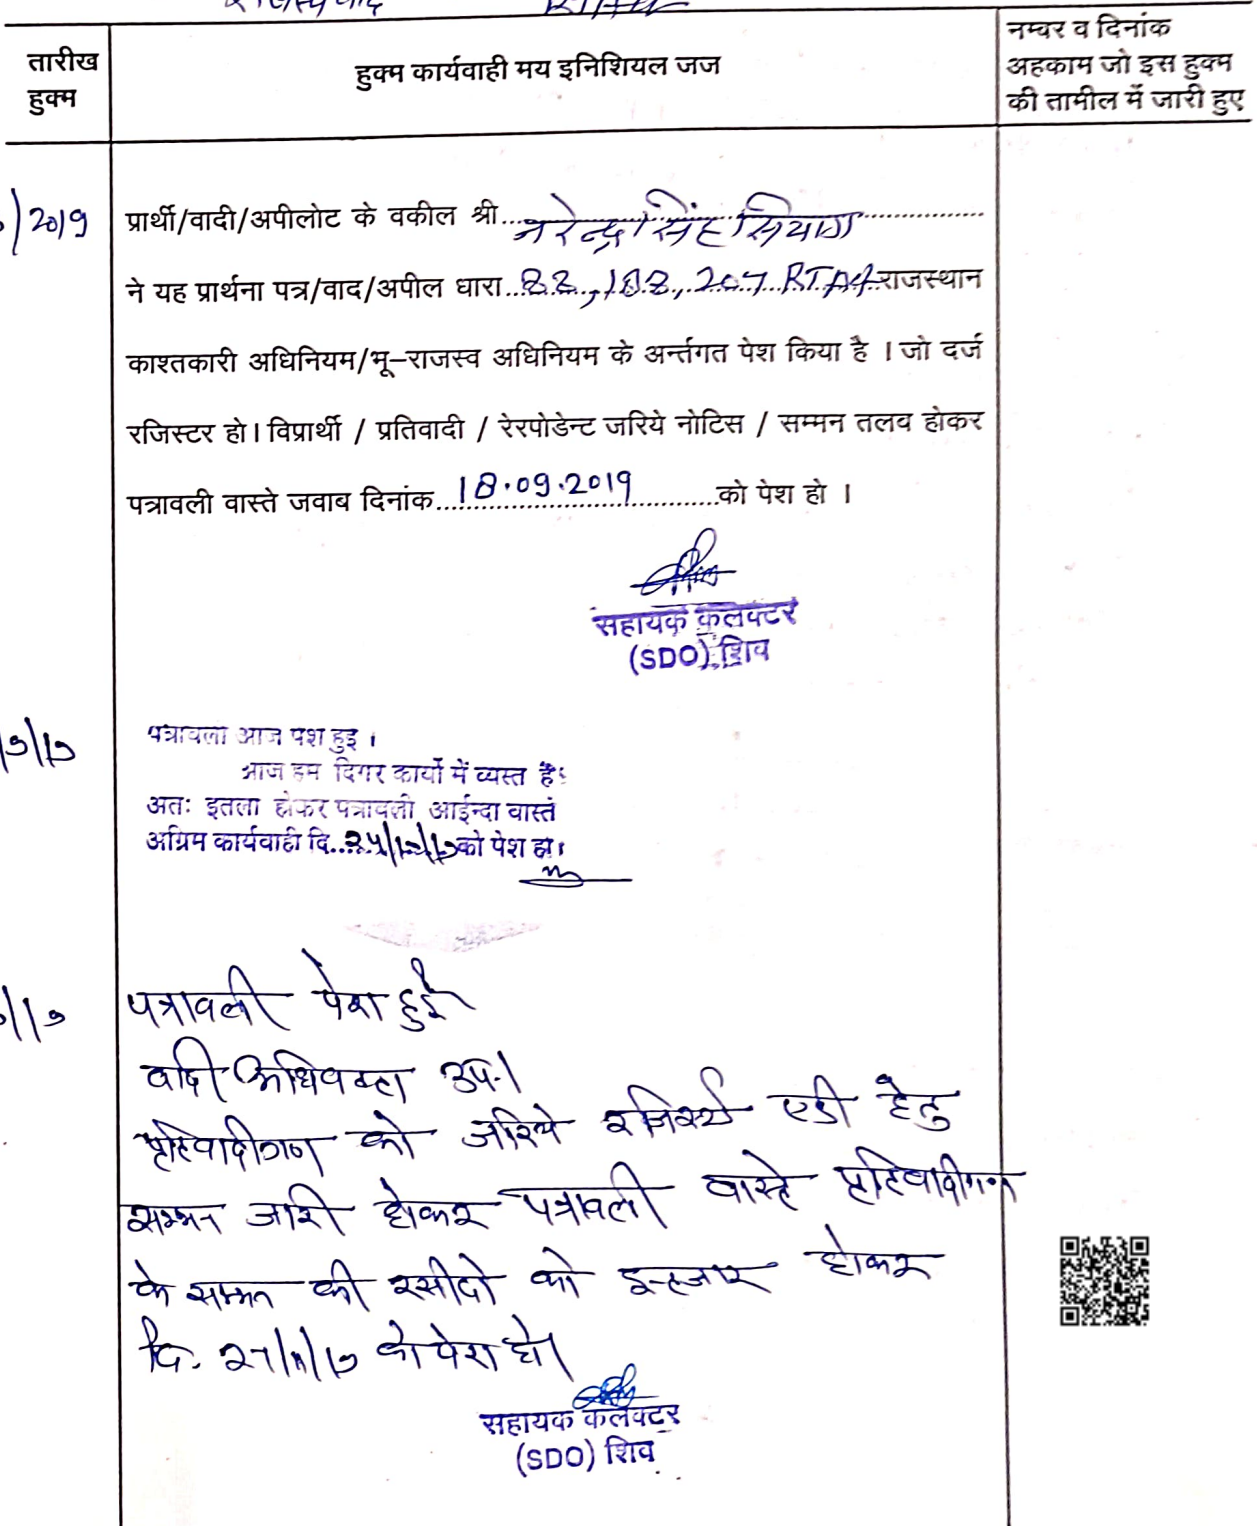 राजस्व वाद
तारीख
हुक्म
हुक्म कार्यवाही मय इनिशियल जज
नम्वर व दिनांक
अहकाम जो इस हुक्म
की तामील में जारी हुए
/2019
प्रार्थी/वादी/अपीलोट के वकील श्री...नरेन्द्र सिंह सियाग...
ने यह प्रार्थना पत्र/वाद/अपील धारा..88,188,207 RTA राजस्थान
काश्तकारी अधिनियम/भू–राजस्व अधिनियम के अर्न्तगत पेश किया है । जो दर्ज
रजिस्टर हो। विप्रार्थी / प्रतिवादी / रेरपोडेन्ट जरिये नोटिस / सम्मन तलव होकर
पत्रावली वास्ते जवाब दिनांक...18.09.2019...को पेश हो ।
सहायक कलक्टर
(SDO) शिव
पत्रावली आज पेश हुई ।
आज हम दिगर कार्यो में व्यस्त है।
अतः इतला होकर पत्रावली आईन्दा वास्ते
अग्रिम कार्यवाही दि...को पेश हो।
पत्रावली पेश हुई
वादी अधिवक्ता उप.।
प्रतिवादीगण को जरिये रजिस्टर्ड एडी हेतु
सम्मन जारी होकर पत्रावली वास्ते प्रतिवादीगण
के सम्मन की रसीदो को इन्तजार होकर
दि. 27/11/19 को पेश हो।
सहायक कलेक्टर
(SDO) शिव